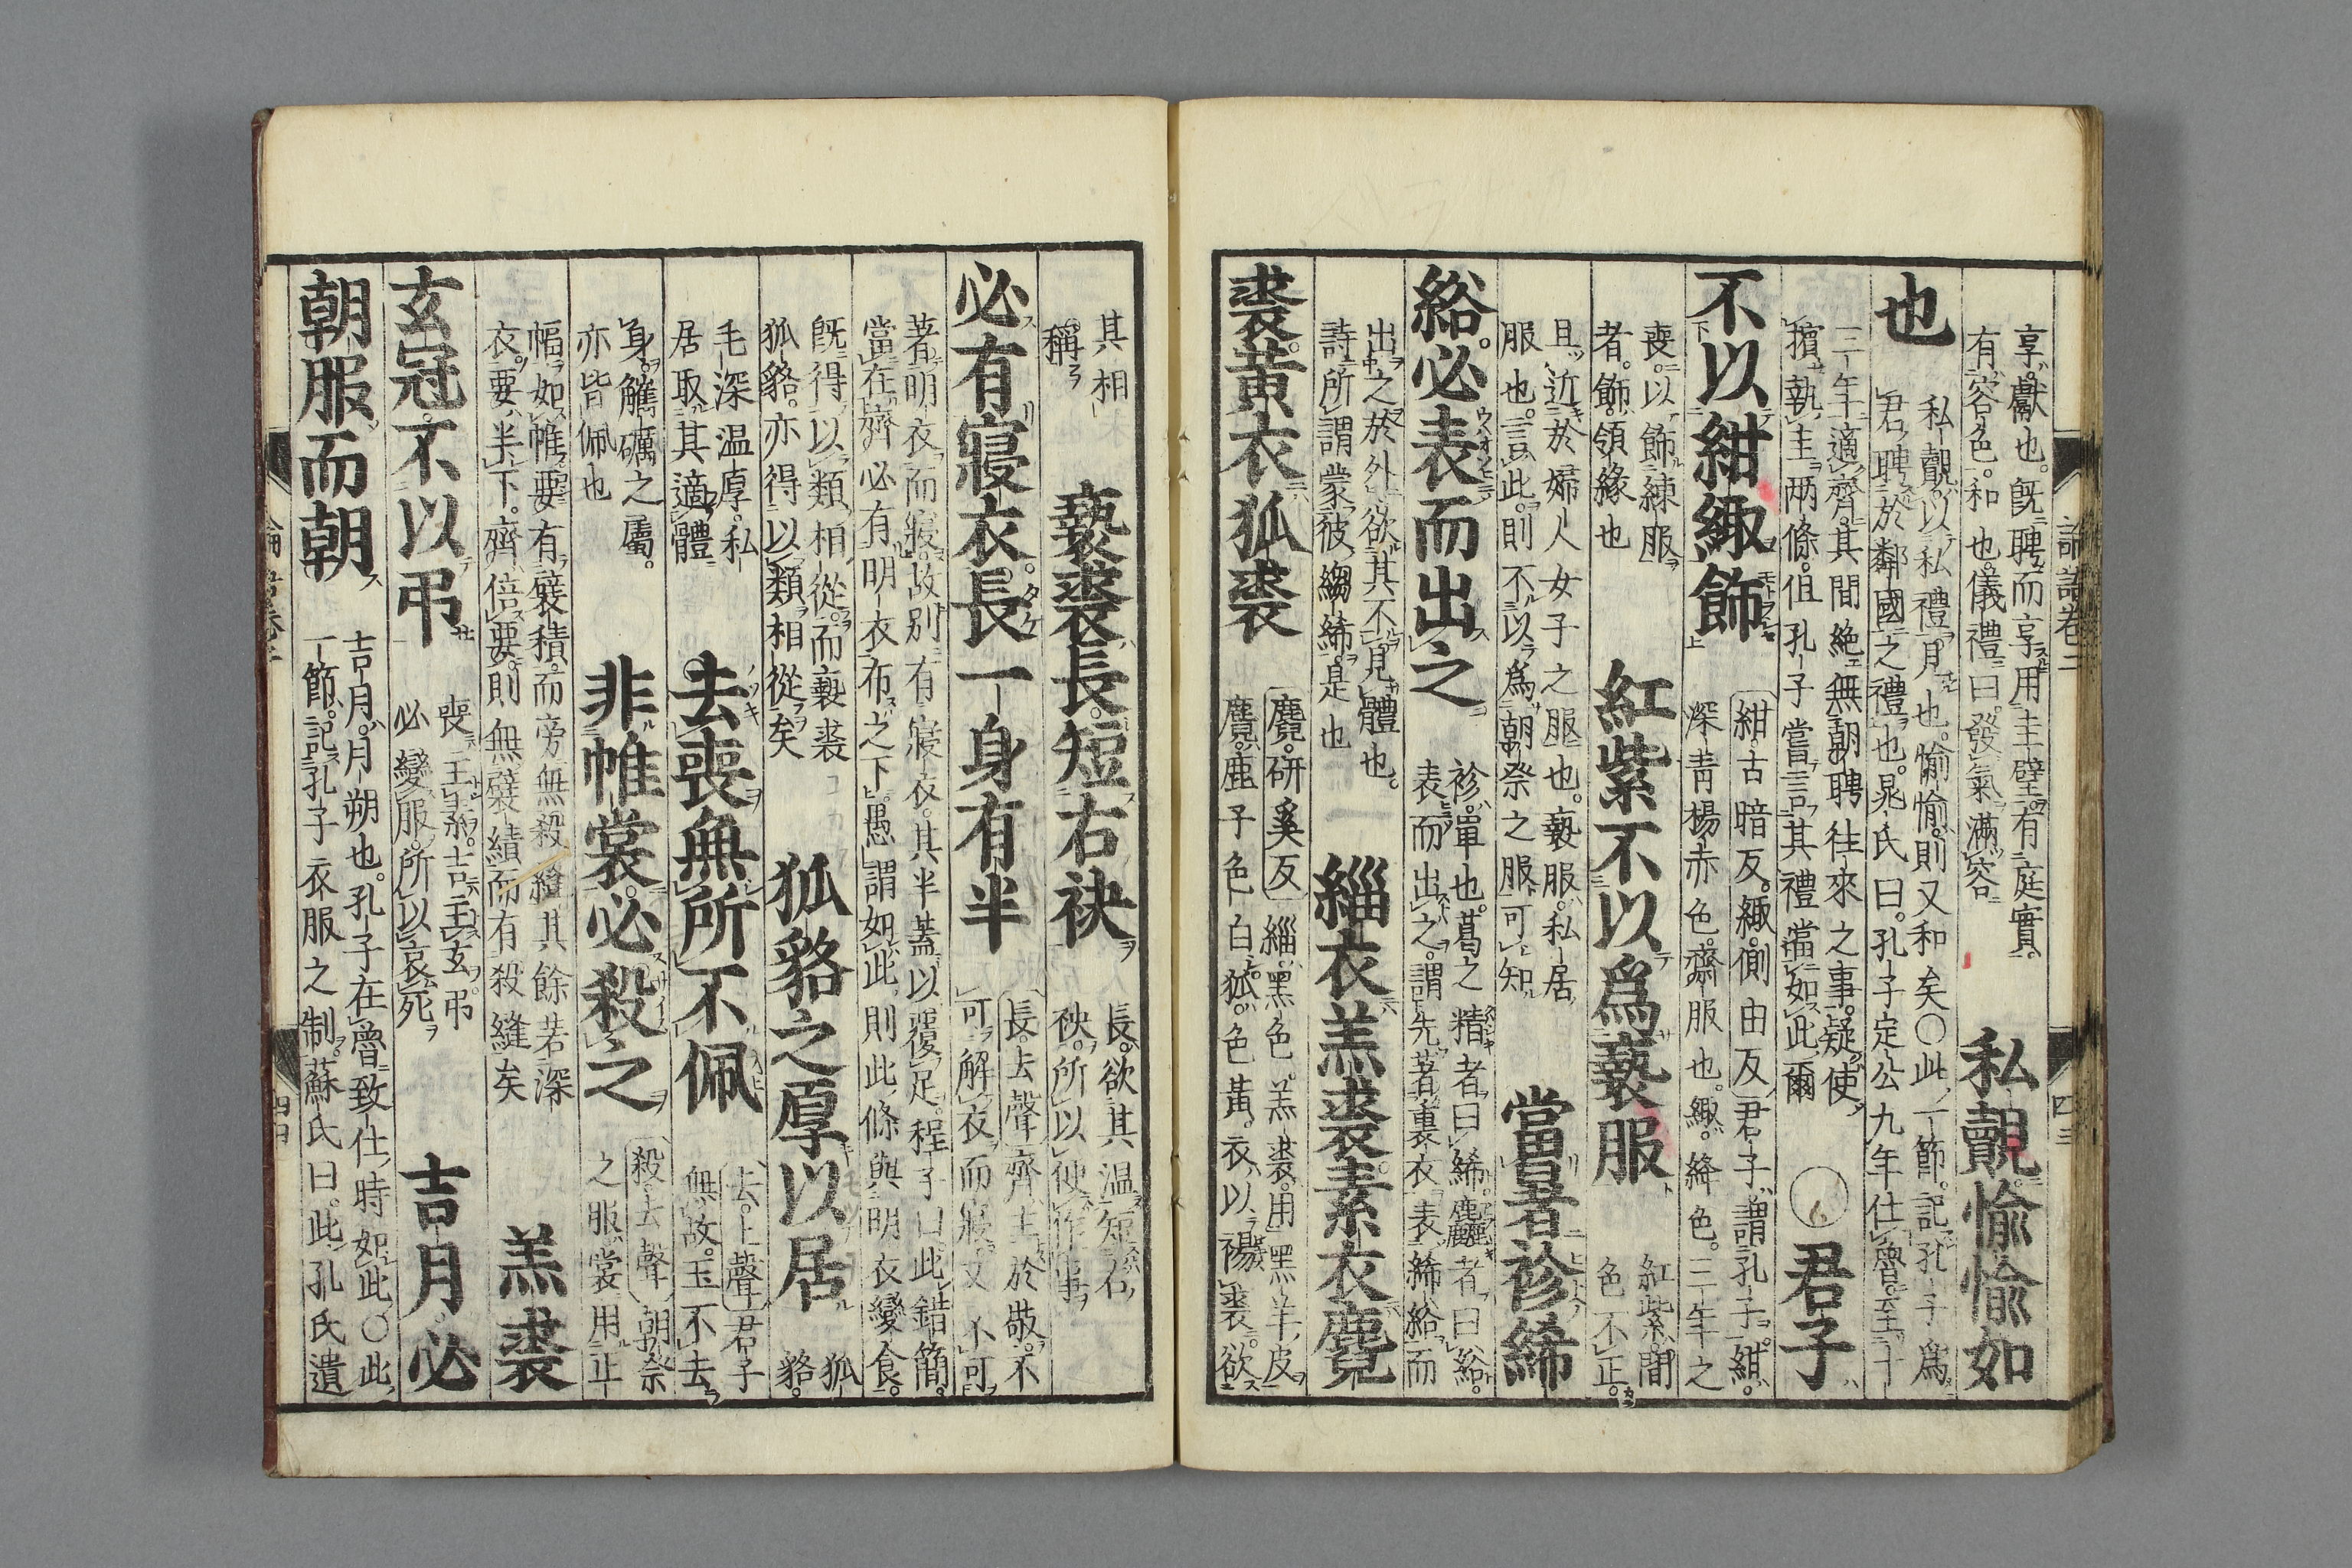 享。獻也。既聘而享。用圭璧。有庭實。
有容色。和也。儀禮曰。發氣滿容
私覿。愉愉如
也
私覿。以私禮見也。愉愉。則又和矣〇此一節。記孔子爲
君聘於鄰國之禮也。晁氏曰。孔子定公九年仕魯。至十
三年適齊。其間絶無朝聘往來之事。疑使
擯執圭兩條。但孔子嘗言其禮當如此爾
〇君子
不以紺緅飾
紺。古暗反。緅。側由反 君子。謂孔子。紺。
深青楊赤色。齊服也。緅。絳色。三年之
喪。以飾練服
者。飾。領緣也
紅紫不以爲褻服
紅紫。間
色不正。
且近於婦人女子之服也。褻服。私居
服也。言此。則不以爲朝祭之服。可知
當暑袗絺
綌。必表而出之
袗。單也。葛之精者曰絺。麤者曰綌。
表而出之。謂先著裏衣。表絺綌而
出之於外。欲其不見體也。
詩所謂蒙彼縐絺。是也
緇衣羔裘素衣麑
裘。黄衣狐裘
麑。研奚反 緇。黑色。羔裘。用黑羊皮
麑。鹿子色白。狐。色黄。衣以裼裘。欲
其相
稱
褻裘長。短右袂
長。欲其温。短右
袂。所以便作事
必有寢衣。長一身有半
長。去聲 齊主於敬。不
可解衣而寢。又不可
著明衣而寢。故別有寢衣。其半蓋以覆足。程子曰。此錯簡。
當在齊必有明衣布之下。愚謂如此。則此條與明衣變食。
既得以類相從。而褻裘
狐貉。亦得以類相從矣
狐貉之厚以居
狐
貉。
毛深温厚。私
居取其適體
去喪無所不佩
去。上聲 君子
無故。玉不去
身。觿礪之屬。
亦皆佩也
非帷裳。必殺之
殺。去聲 朝祭
之服。裳用正
幅。如帷。要有襞積。而旁無殺縫。其餘若深
衣。要半下。齊倍要。則無襞績而有殺縫矣
羔裘
玄冠。不以弔
喪主素。吉主玄。弔
必變服。所以哀死
吉月必
朝服而朝
吉月。月朔也。孔子在魯致仕時如此〇此
一節。記孔子衣服之制。蘇氏曰。此孔氏遺
論語卷三
四三
四四